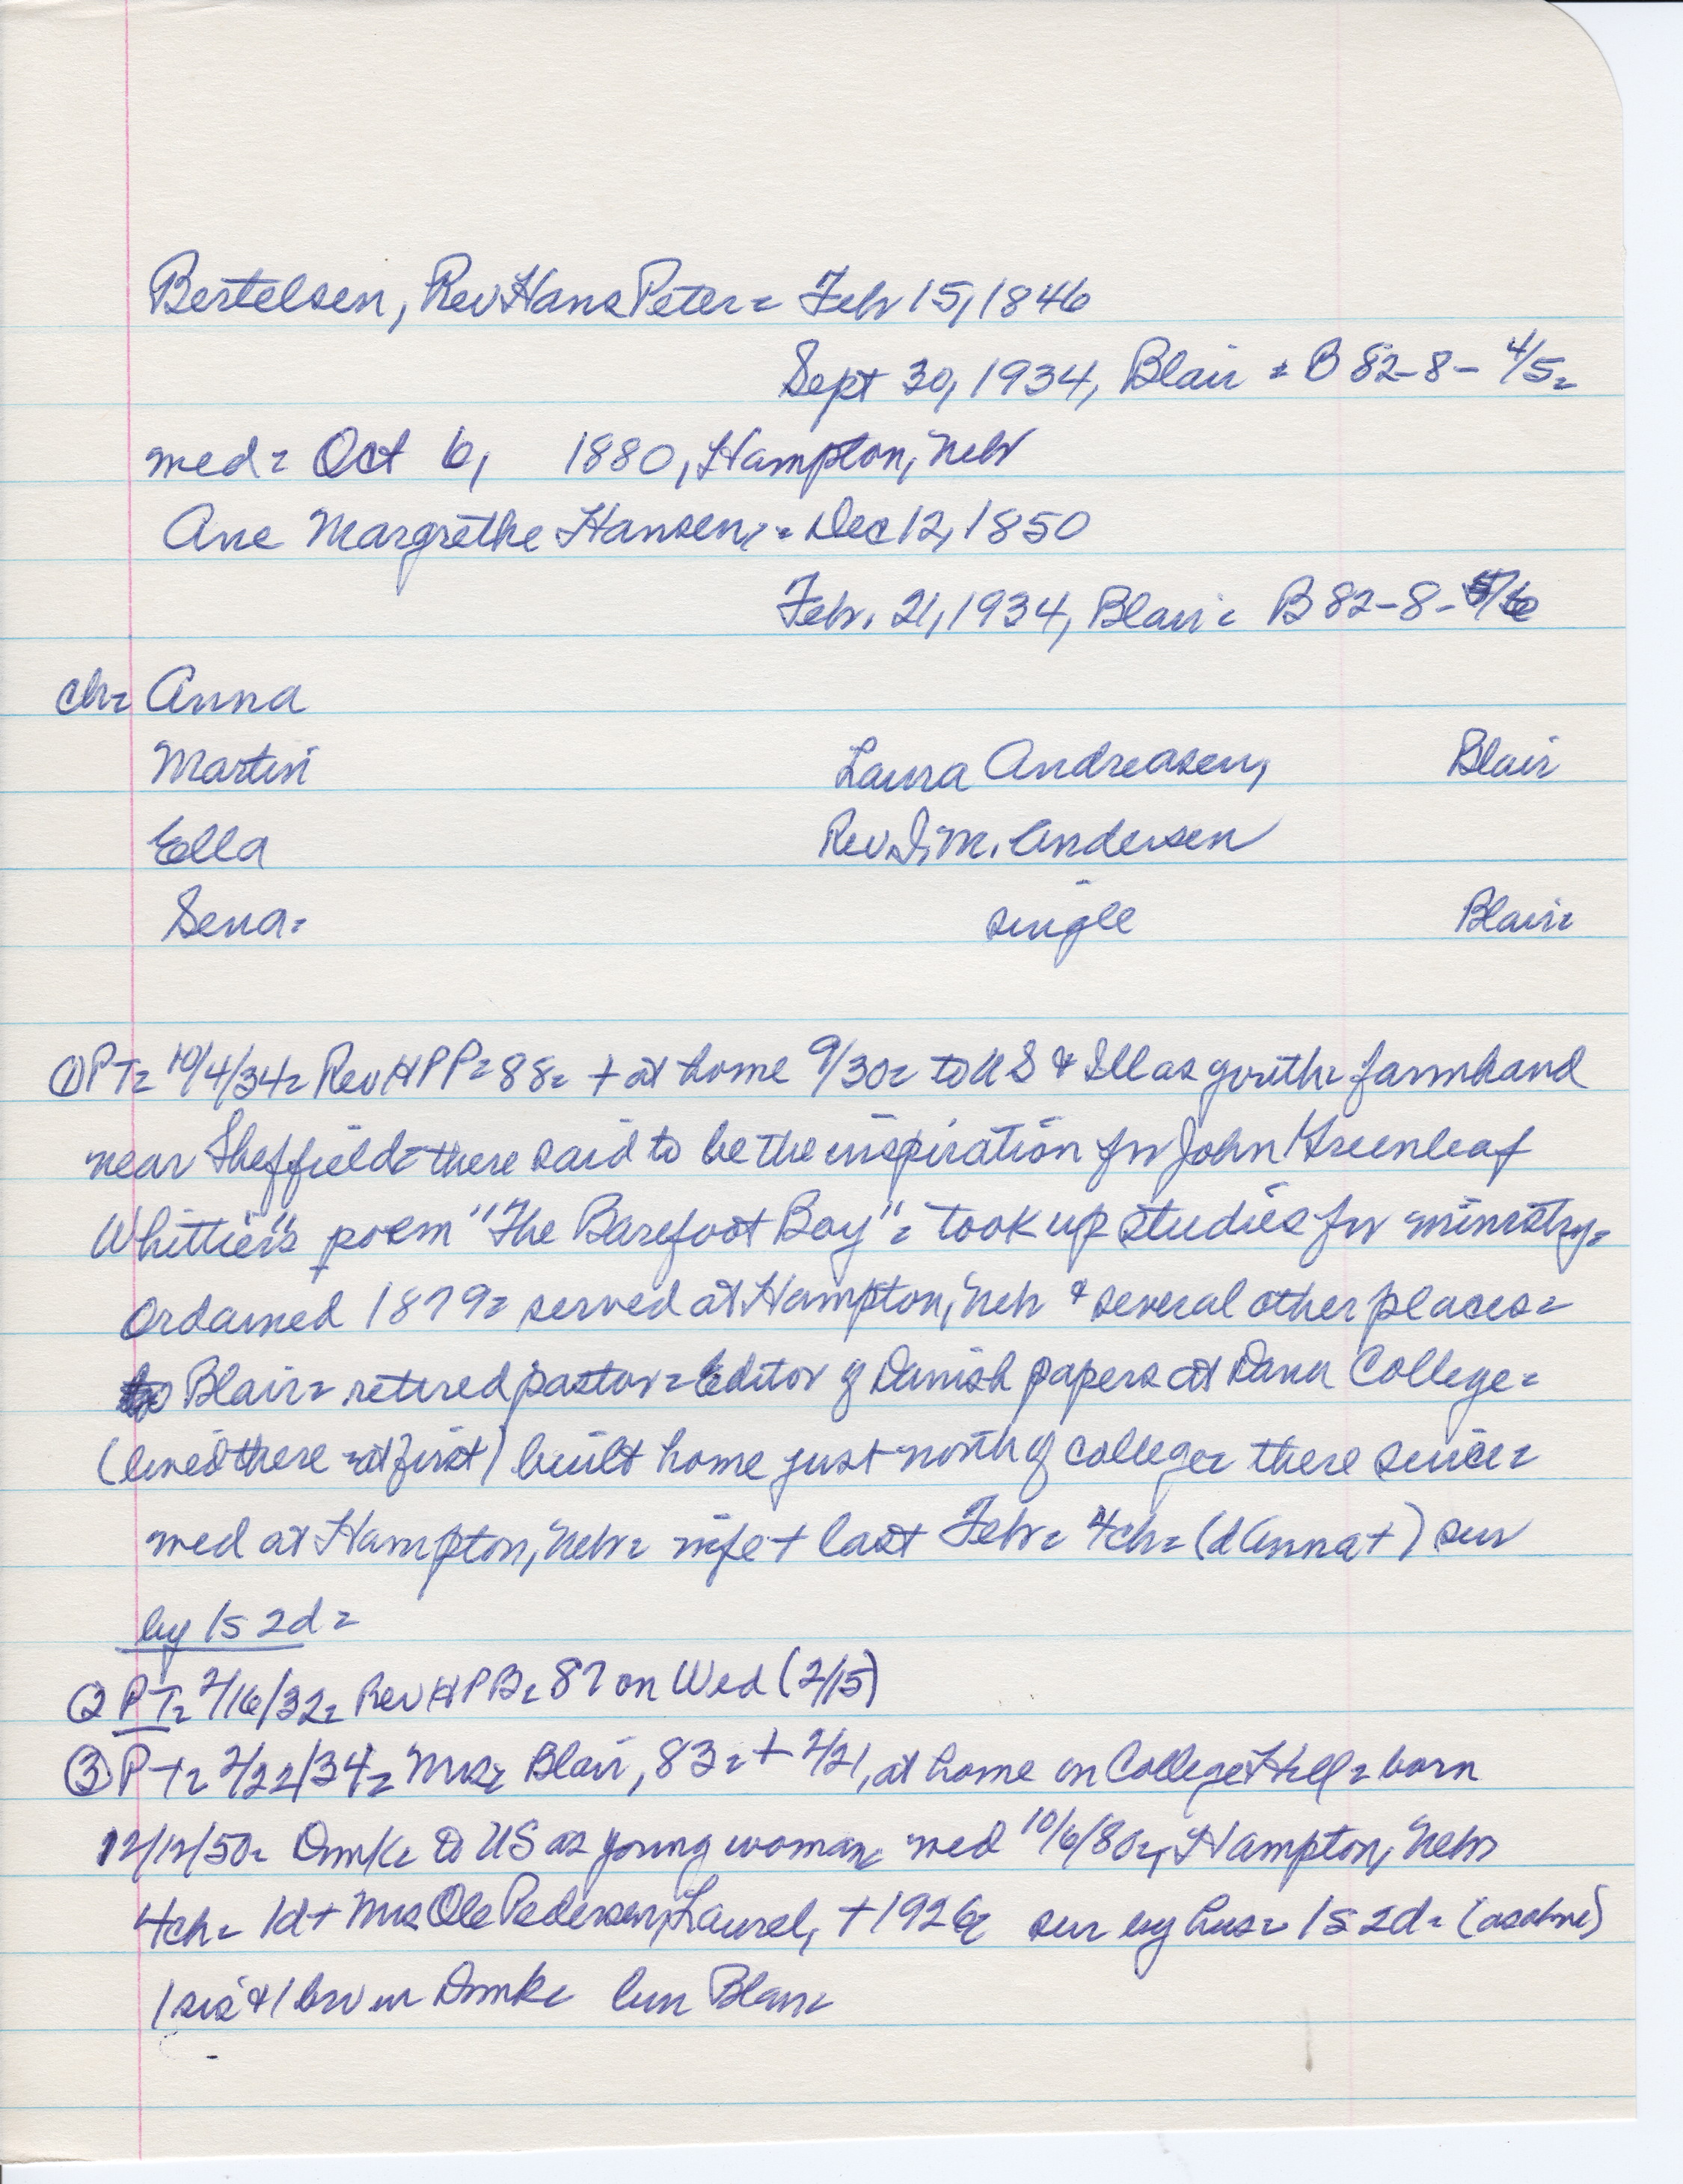 Bertelsen, Rev Hans Peter = Feb 15, 1846
Sept 30, 1934, Blair = B 82-8- 4/5 =
med = Oct 6, 1880, Hampton, Nebr
Ane Margrethe Hansen, = Dec 12, 1850
Febr. 21, 1934, Blair = B 82-8-
ch = Anna
Martin Laura Andreasen, Blair
Ella Rev. I. M. Andersen
Sena = single Blair =
① PT = 10/4/34 = Rev HPP = 88 = + at home 9/30 = to US & Ill as youth = farmhand
near Sheffield = there said to be the inspiration for John Greenleaf
Whittier's poem "The Barefoot Boy" = took up studies for ministry =
Ordained 1879 = served at Hampton, Nebr & several other places =
Blair = retired pastor = Editor of Danish papers at Dana College =
(lived there at first) built home just north of college = there since =
med at Hampton, Nebr = wife + last Febr = 4ch = (d Anna +) sur
by 1s 2d =
② PT = 2/16/32 = Rev HPB = 87 on Wed (2/15)
③ PT = 2/22/34 = Mrs = Blair, 83 = + 2/21, at home on College Hill = born
12/12/50 = Dmk = to US as young woman = med 10/6/80 =, Hampton, Nebr
4ch = 1d + Mrs Ole Pedersen, Laurel, + 1926 = sur by hus = 1s 2d = (as above)
1 sis & 1 bro in Dmk = bur Blair =